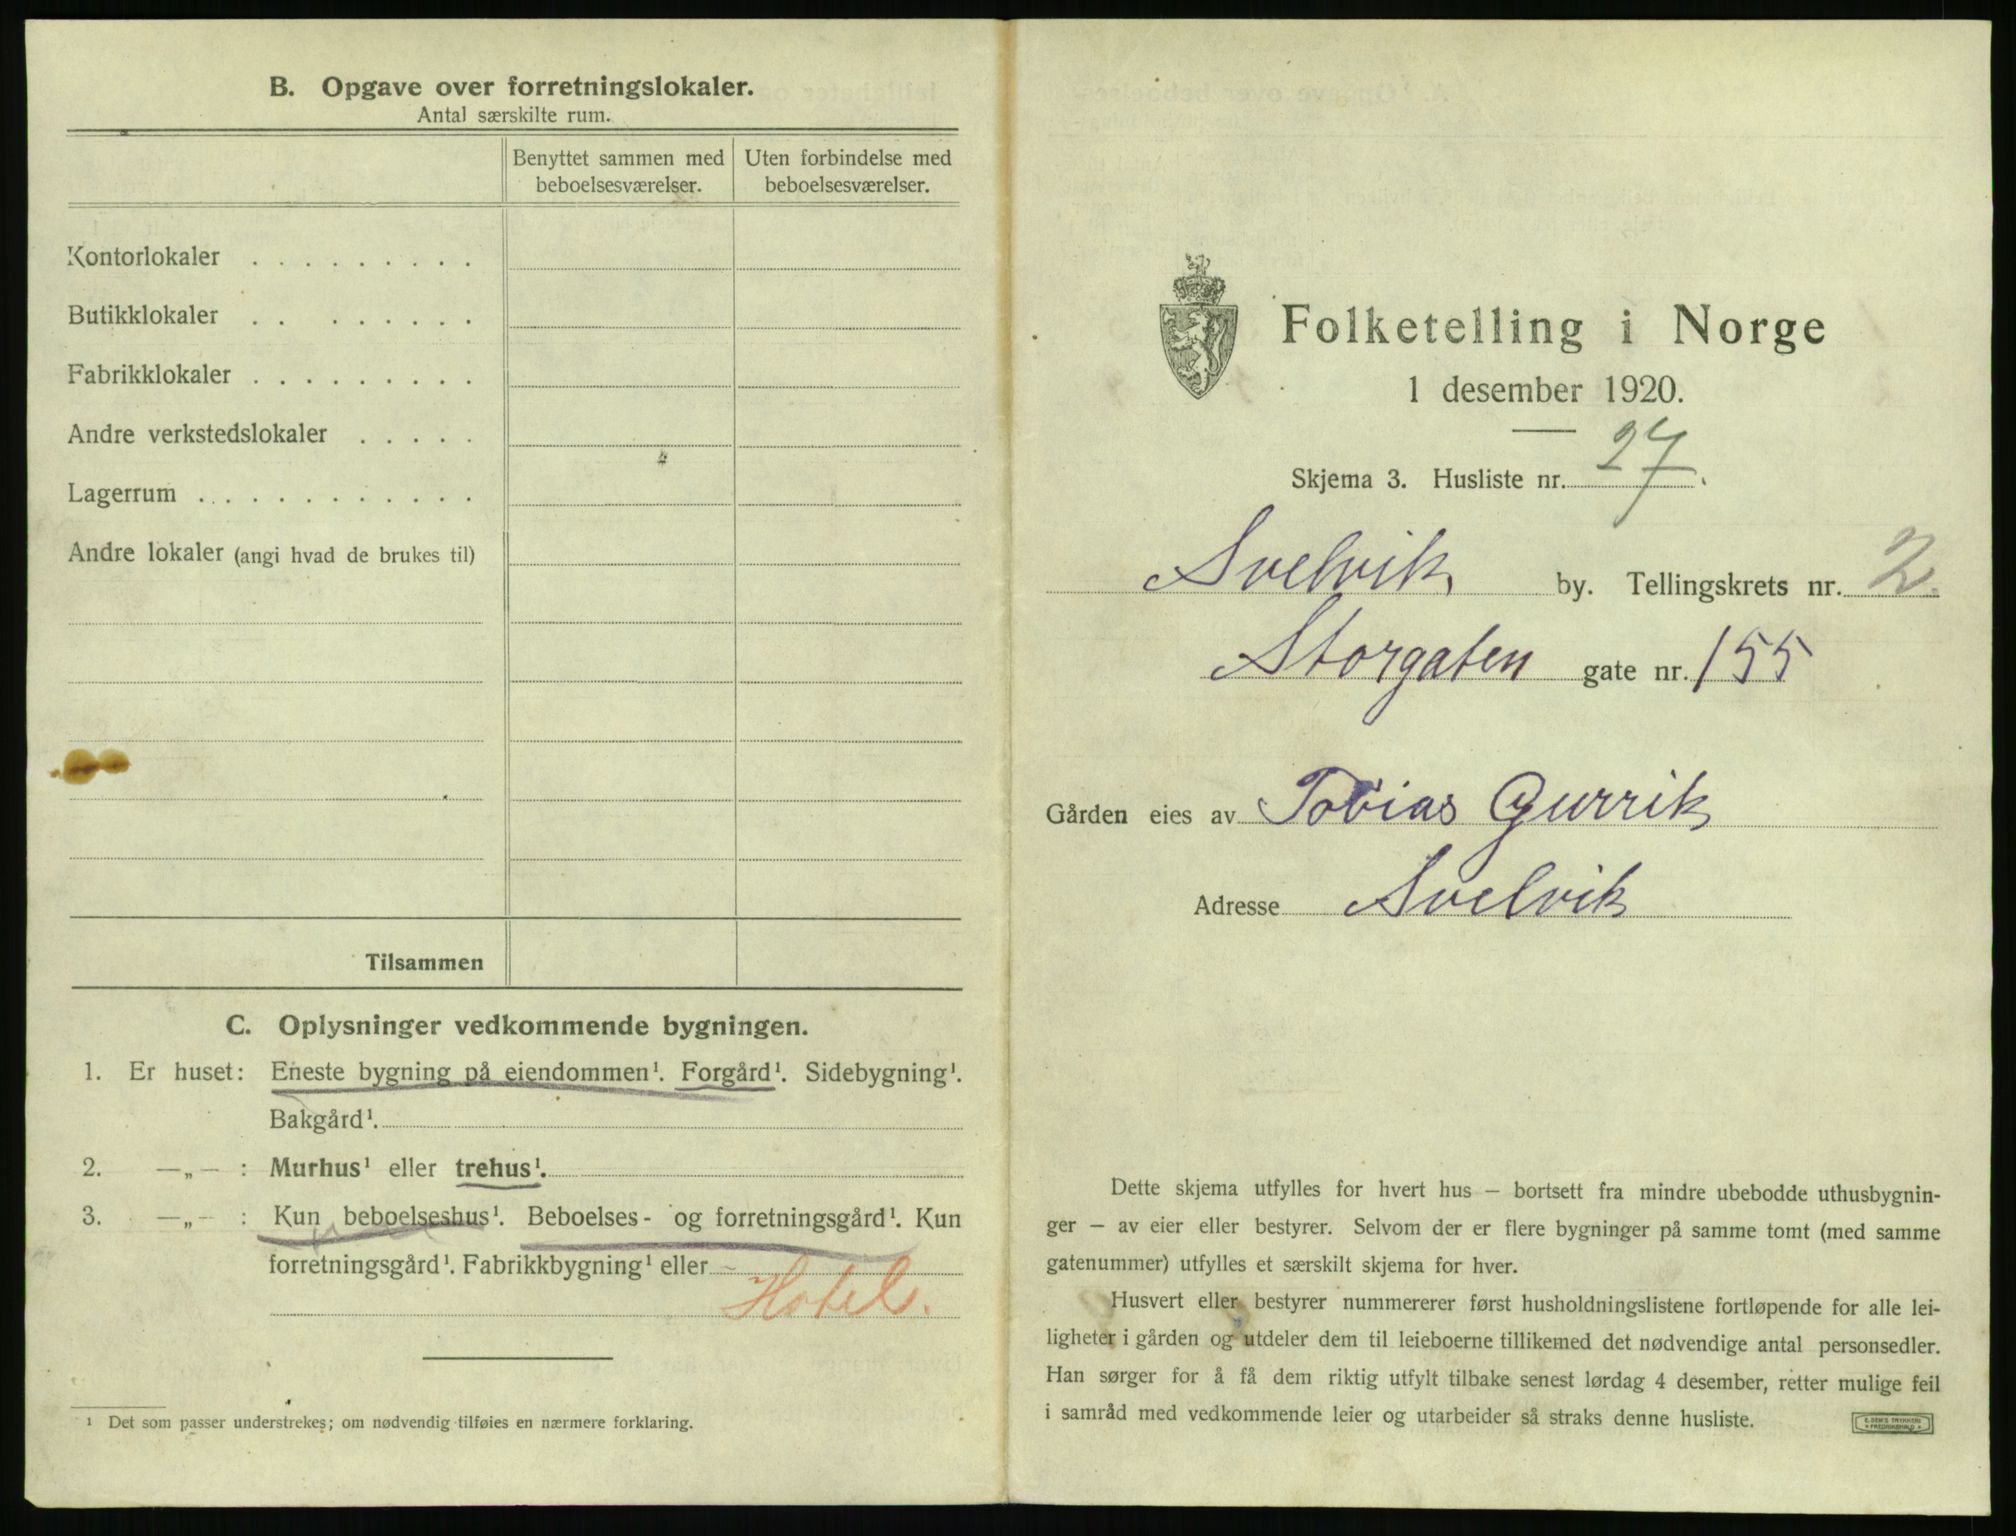 B. Opgave over forretningslokaler.
Antal særskilte rum.
Benyttet sammen med beboelsesværelser.
Uten forbindelse med beboelsesværelser.
Kontorlokaler . . . . . . . . .
Butikklokaler . . . . . . . .
Fabrikklokaler . . . . . . . . .
Andre verkstedslokaler . . . . .
Lagerrum . . . . . . . . . . .
Andre lokaler (angi hvad de brukes til)
Tilsammen
C. Oplysninger vedkommende bygningen.
1. Er huset: Eneste bygning på eiendommen¹. Forgård¹. Sidebygning¹.
Bakgård¹.
2. —„— : Murhus¹ eller trehus¹.
3. —„— : Kun beboelseshus¹. Beboelses- og forretningsgård¹. Kun
forretningsgård¹. Fabrikkbygning¹ eller
Hotel.
¹ Det som passer understrekes; om nødvendig tilføies en nærmere forklaring.
Folketelling i Norge
1 desember 1920.
Skjema 3. Husliste nr. 27.
Svelvik by. Tellingskrets nr. 2.
Storgaten gate nr. 155
Gården eies av Tobias Gurrik
Adresse Svelvik
Dette skjema utfylles for hvert hus – bortsett fra mindre ubebodde uthusbygnin-
ger – av eier eller bestyrer. Selvom der er flere bygninger på samme tomt (med samme
gatenummer) utfylles et særskilt skjema for hver.
Husvert eller bestyrer nummererer først husholdningslistene fortløpende for alle lei-
ligheter i gården og utdeler dem til leieboerne tillikemed det nødvendige antal personsedler.
Han sørger for å få dem riktig utfylt tilbake senest lørdag 4 desember, retter mulige feil
i samråd med vedkommende leier og utarbeider så straks denne husliste.